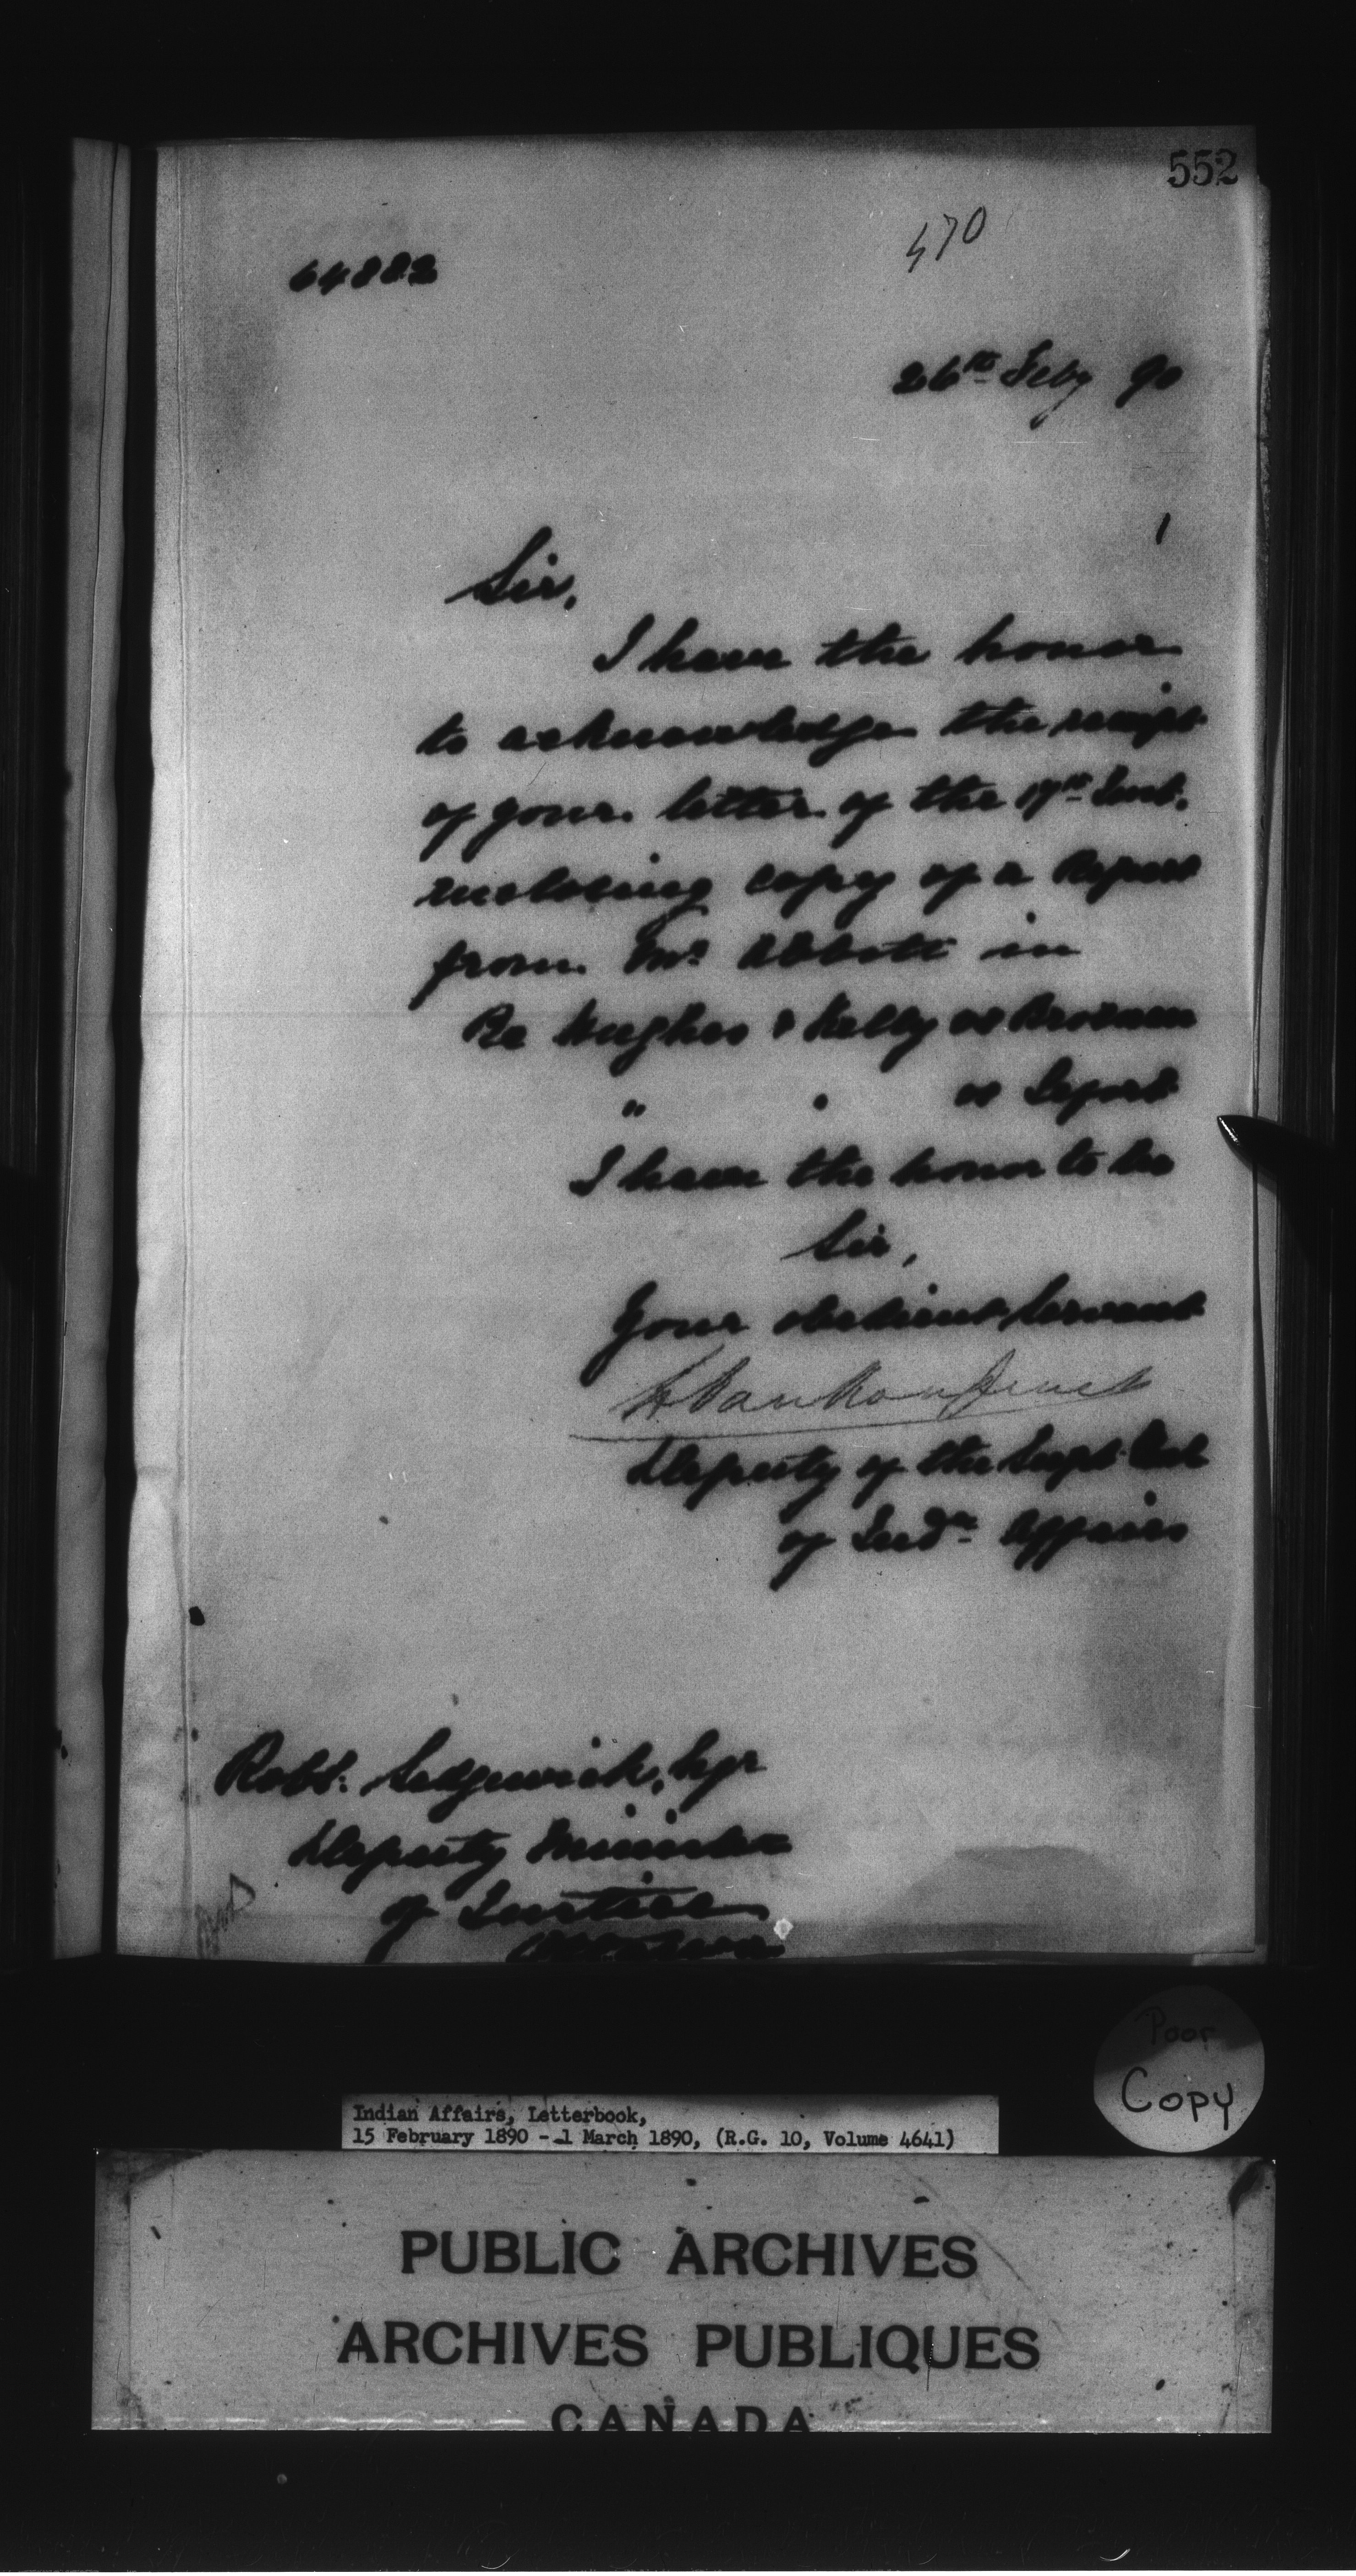 552
470
64882
26th Feby 90
Sir,
I have the honor
to acknowledge the receipt
of your letter of the 17th Inst.
enclosing copy of a Report
from Mr Abbott in
Re Hughes & Kelly vs Brosnan
" " vs
I have the honor to be
Sir,
Your obedient Servant
L VanKoughnet
Deputy of the Supt Genl
of Indn Affairs
Robt: Sedgewick, Esqr
Deputy Minister
of Justice
Ottawa
Poor
Copy
Indian Affairs, Letterbook,
15 February 1890 - 1 March 1890, (R.G. 10, Volume 4641)
PUBLIC ARCHIVES
ARCHIVES PUBLIQUES
CANADA